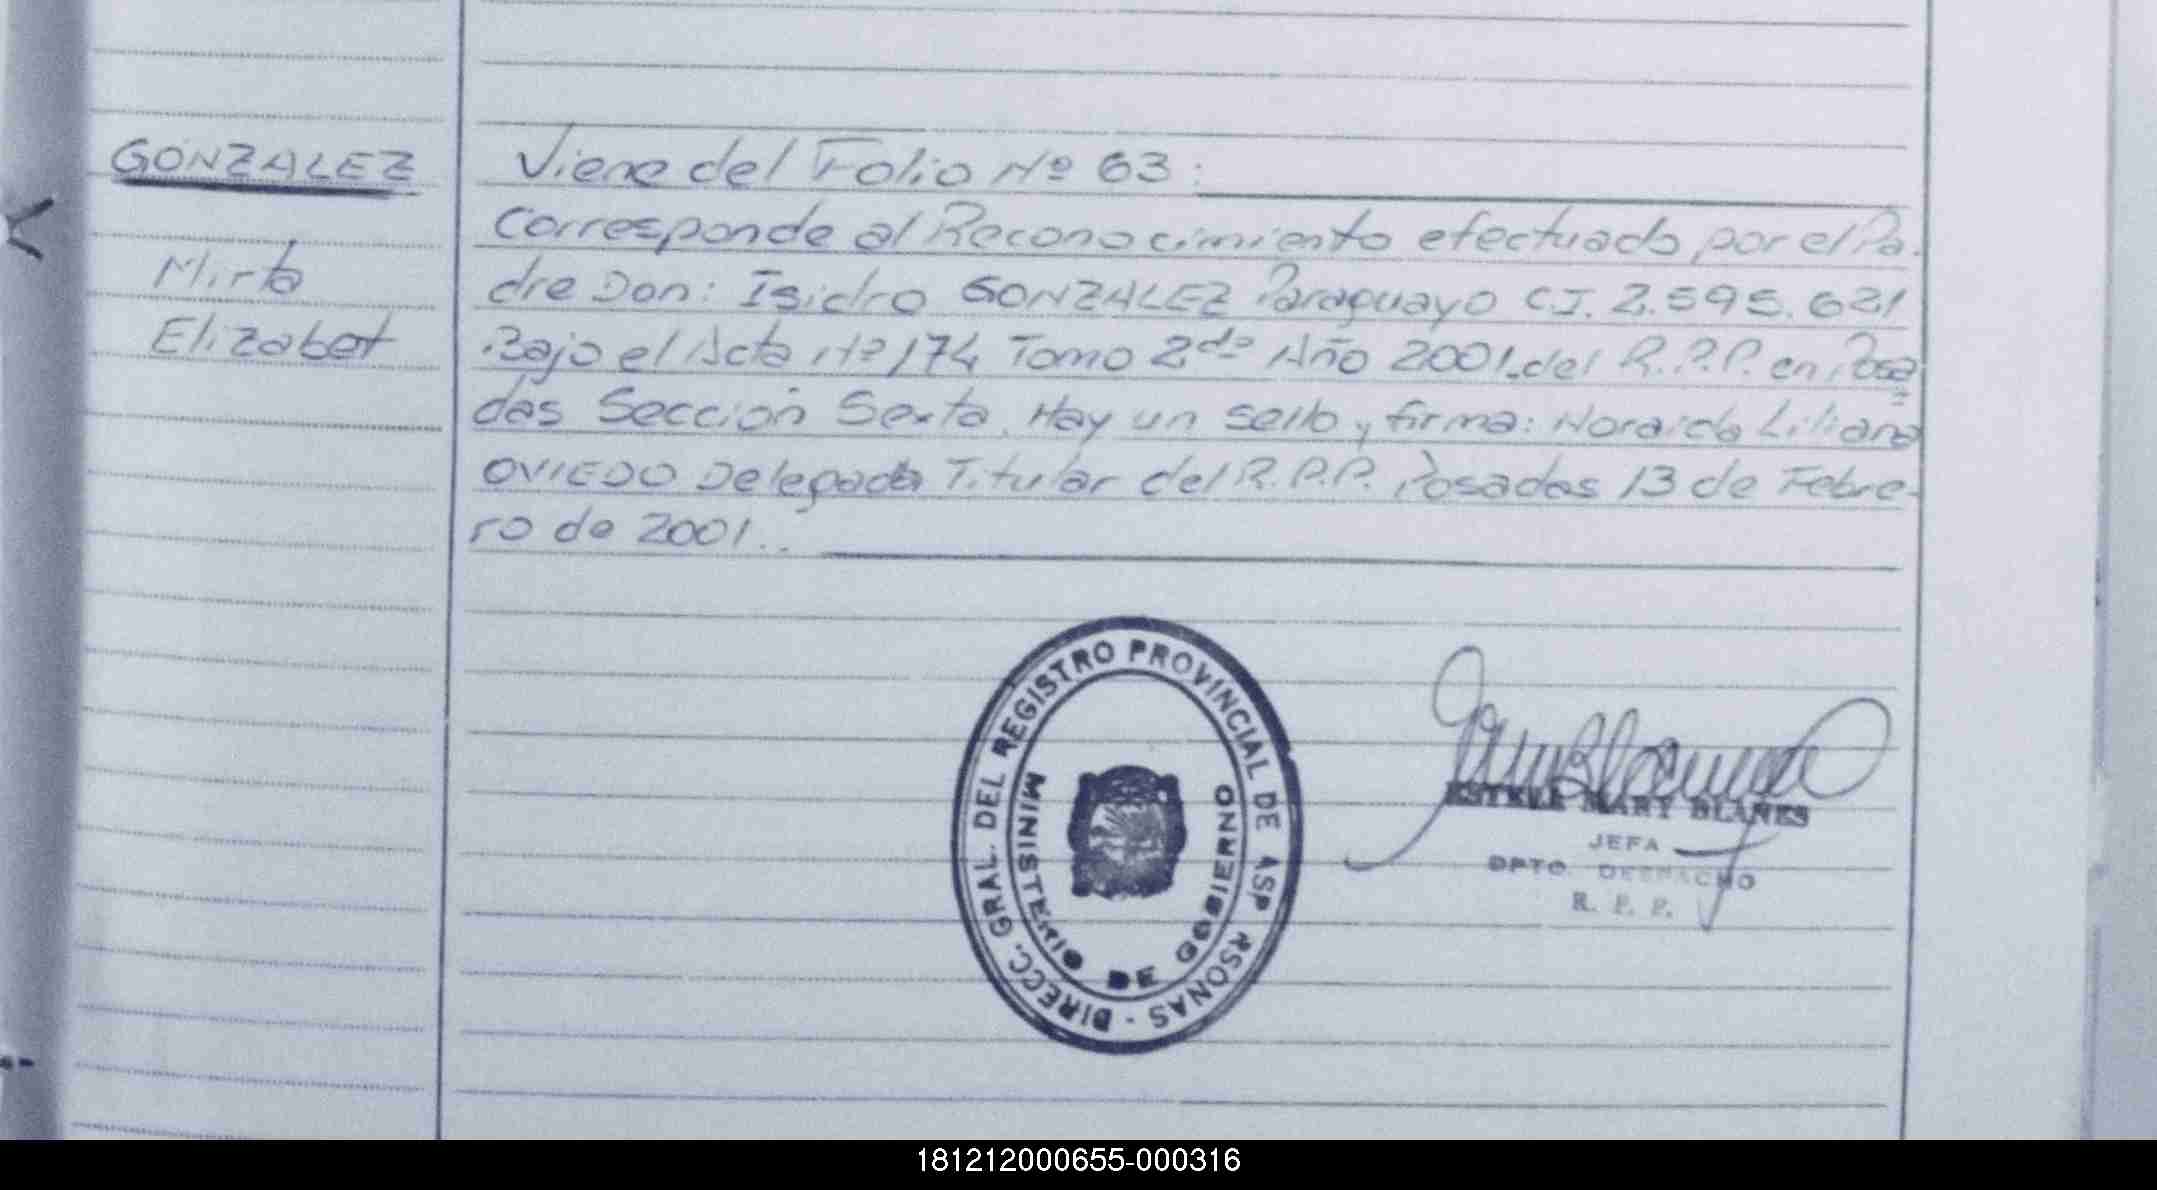 GONZALEZ
Mirta
Elizabet
Viene del Folio Nº 63:
Corresponde al Reconocimiento efectuado por el Pa-
dre Don: Isidro GONZALEZ Paraguayo C.I. 2.595.621
Bajo el Acta Nº 174 Tomo 2do Año 2001.del R.P.P. en Posa
das Sección Sexta. Hay un sello y firma: Noraida Liliana
OVIEDO Delegada Titular del R.P.P. Posadas 13 de Febre-
ro de 2001..
DIRECC. GRAL. DEL REGISTRO PROVINCIAL DE ASP RSONAS -
MINISTERIO DE GOBIERNO
ESTELA MARY BLANES
JEFA
DPTO. DESPACHO
R. P. P.
181212000655-000316